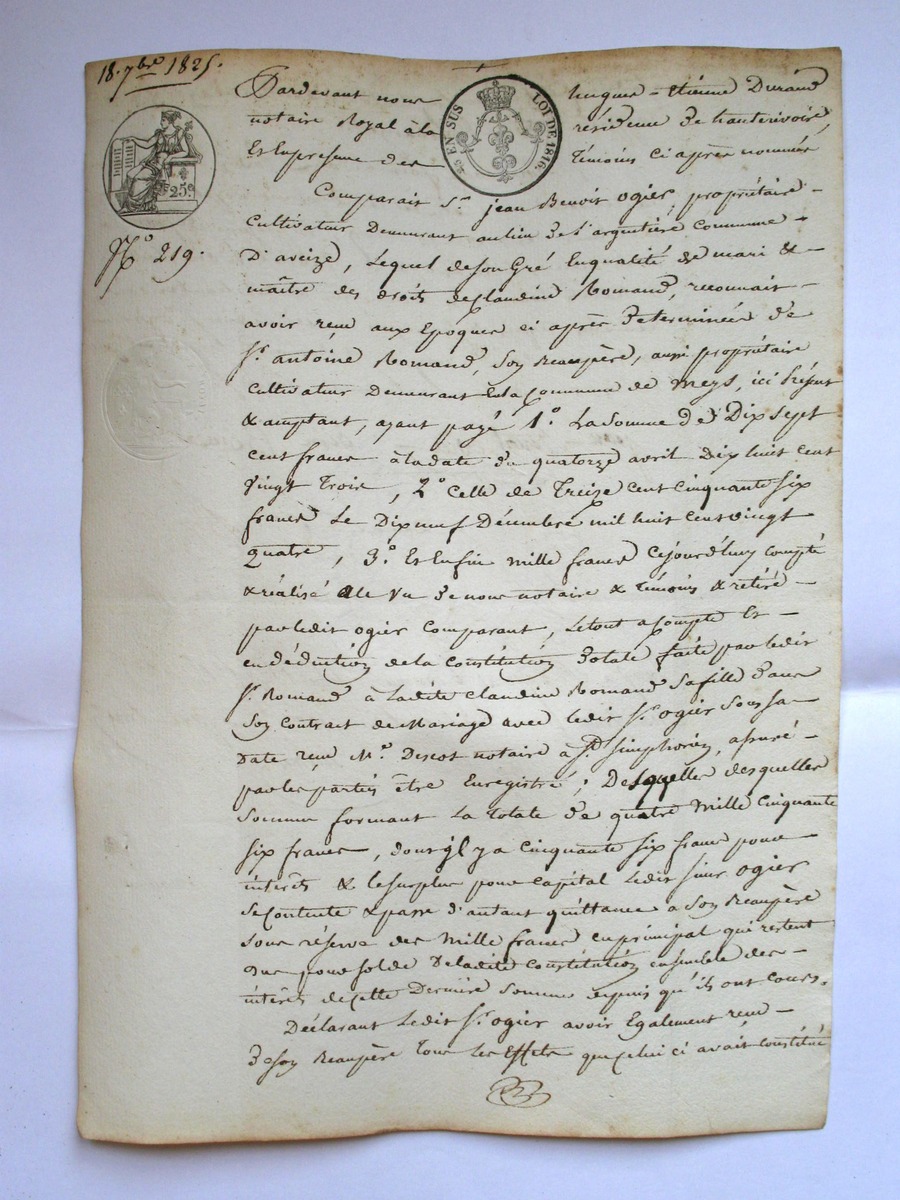 18. 7bre 1825.
Pardevant nous hugues - Etienne Durand
notaire Royal à la résidence de hauterivoire,
Et En présence des Témoins ci après nommés
EN SUS LOI DE 1816.
25c
N.º 219.
Comparait Sr. jean Benoit ogier, propriétaire -
Cultivateur Demeurant au lieu de l'argentière commune -
D'aveize, Lequel de son Gré En qualité de mari & -
maître des droits de Claudine Romand, reconnait -
avoir reçu aux Epoques ci après Determinées de
Sr. antoine Romand, Son Beaupère, aussi propriétaire
Cultivateur Demeurant En la Commune de Meys, ici Présent
& acceptant, ayant payé 1º. La Somme de Dix sept
cent francs à la date du quatorze avril Dix huit cent
Vingt Trois, 2º Celle de Treize Cent Cinquante Six
francs Le Dix neuf Décembre mil huit Cent vingt
Quatre, 3º. Et Enfin mille francs Cejourd'huy Compté
& réalisé à la Vu de nous notaire & Témoins & retiré -
par ledit ogier Comparant, Le tout a compte Et -
en déduction de la Constitution Dotale faite par ledit
Sr. Romand à Ladite Claudine Romand Sa fille Dans
Son Contrat de Mariage avec ledit Sr. ogier Sous sa
Date reçu Me. Descot notaire à St. Simphorien, assuré -
par les parties être Enregistré; Desquelles desquelles
Sommes formant La Totale de quatre Mille Cinquante
Six francs, dont il y a Cinquante Six francs pour
intérêts & le surplus pour Capital Ledit Sieur ogier
Se Contente & passe d'autant quittance à Son Beaupère
Sous réserve des Mille francs en principal qui restent
Dus pour Solde De ladite Constitution ensemble des -
intérêts de cette Dernière Somme depuis qu'ils ont Cours.
Déclarant Ledit Sr. ogier avoir Egalement reçu -
De Son Beaupère Tous Les Effets que celui ci avait Constitué